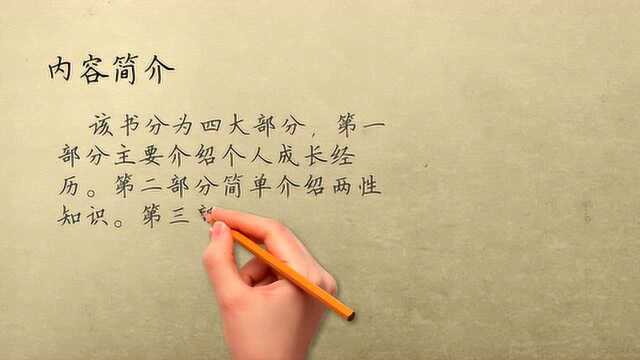 内容简介
该书分为四大部分，第一
部分主要介绍个人成长经
历。第二部分简单介绍两性
知识。第三